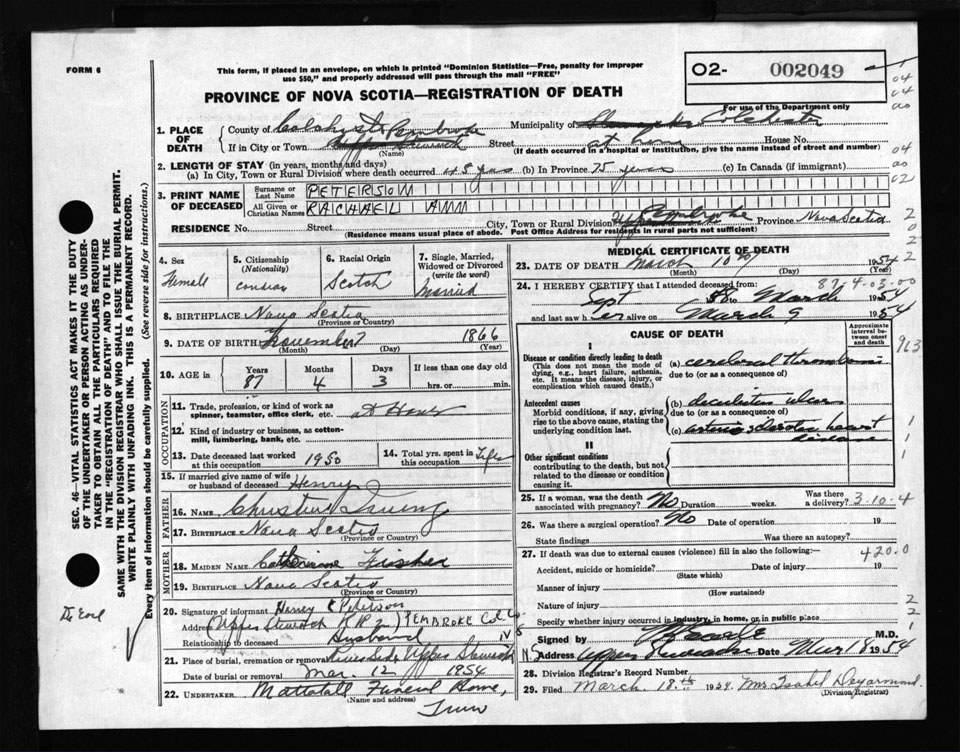 FORM 6
This form, if placed in an envelope, on which is printed "Dominion Statistics—Free, penalty for improper
use $50," and properly addressed will pass through the mail "FREE"
O2- 002049
For use of the Department only
PROVINCE OF NOVA SCOTIA—REGISTRATION OF DEATH
1. PLACE OF DEATH
County of Colchester Pembroke Municipality of Colchester
If in City or Town Street at home House No.
(Name) (If death occurred in a hospital or institution, give the name instead of street and number)
2. LENGTH OF STAY (in years, months and days)
(a) In City, Town or Rural Division where death occurred 48 yrs (b) In Province 75 years (c) In Canada (if immigrant)
3. PRINT NAME OF DECEASED
Surname or Last Name PETERSON
All Given or Christian Names RACHAEL ANN
RESIDENCE No. Street City, Town or Rural Division Pembroke Province Nova Scotia
(Residence means usual place of abode. Post Office Address for residents in rural parts not sufficient)
4. Sex Female
5. Citizenship (Nationality)
6. Racial Origin Scotch
7. Single, Married, Widowed or Divorced (write the word) Married
8. BIRTHPLACE Nova Scotia
(Province or Country)
9. DATE OF BIRTH November 7 1866
(Month) (Day) (Year)
10. AGE in Years 87 Months 4 Days 3 If less than one day old hrs. or min.
OCCUPATION
11. Trade, profession, or kind of work as spinner, teamster, office clerk, etc. at Home
12. Kind of industry or business, as cotton-mill, lumbering, bank, etc.
13. Date deceased last worked at this occupation 1950
14. Total yrs. spent in this occupation Life
15. If married give name of wife or husband of deceased Henry
FATHER
16. NAME
17. BIRTHPLACE Nova Scotia
(Province or Country)
MOTHER
18. MAIDEN NAME Catherine Fisher
19. BIRTHPLACE Nova Scotia
(Province or Country)
20. Signature of informant Harvey C Peterson
Address (Upper Stewiacke R.R. 2) PEMBROKE Col. Co.
Relationship to deceased Husband
21. Place of burial, cremation or removal Riverside Upper Stewiacke
Date of burial or removal Mar. 12 1954
22. UNDERTAKER Mattatall Funeral Home,
(Name and address)
Truro
MEDICAL CERTIFICATE OF DEATH
23. DATE OF DEATH March 10 1954
(Month) (Day) (Year)
24. I HEREBY CERTIFY that I attended deceased from: 87-4-03-00
Sept to March 1954
and last saw her alive on March 9 1954
CAUSE OF DEATH
Approximate interval between onset and death
I
Disease or condition directly leading to death
(This does not mean the mode of dying, e.g., heart failure, asthenia, etc. It means the disease, injury, or complication which caused death.)
(a) cerebral thrombosis
due to (or as a consequence of)
Antecedent causes
Morbid conditions, if any, giving rise to the above cause, stating the underlying condition last.
(b) decubitus ulcer
due to (or as a consequence of)
(c) arteriosclerotic heart disease
II
Other significant conditions
contributing to the death, but not related to the disease or condition causing it.
25. If a woman, was the death associated with pregnancy? No Duration weeks. Was there a delivery? 3-10-4
26. Was there surgical operation? No Date of operation 19
State findings Was there an autopsy?
27. If death was due to external causes (violence) fill in also the following:— 420.0
Accident, suicide or homicide? Date of injury 19
(State which)
Manner of injury
(How sustained)
Nature of injury
Specify whether injury occurred in industry, in home, or in public place
Signed by M.D.
N.S. Address Upper Stewiacke Date Mar 18 1954
28. Division Registrar's Record Number
29. Filed March 18th 1954. Mrs Isabel Deyarmond.
(Division Registrar)
SEC. 46—VITAL STATISTICS ACT MAKES IT THE DUTY
OF THE UNDERTAKER OR PERSON ACTING AS UNDER-
TAKER TO OBTAIN ALL THE PARTICULARS REQUIRED
IN THE "REGISTRATION OF DEATH" AND TO FILE THE
SAME WITH THE DIVISION REGISTRAR WHO SHALL ISSUE THE BURIAL PERMIT.
WRITE PLAINLY WITH UNFADING INK. THIS IS A PERMANENT RECORD.
Every item of information should be carefully supplied. (See reverse side for instructions.)